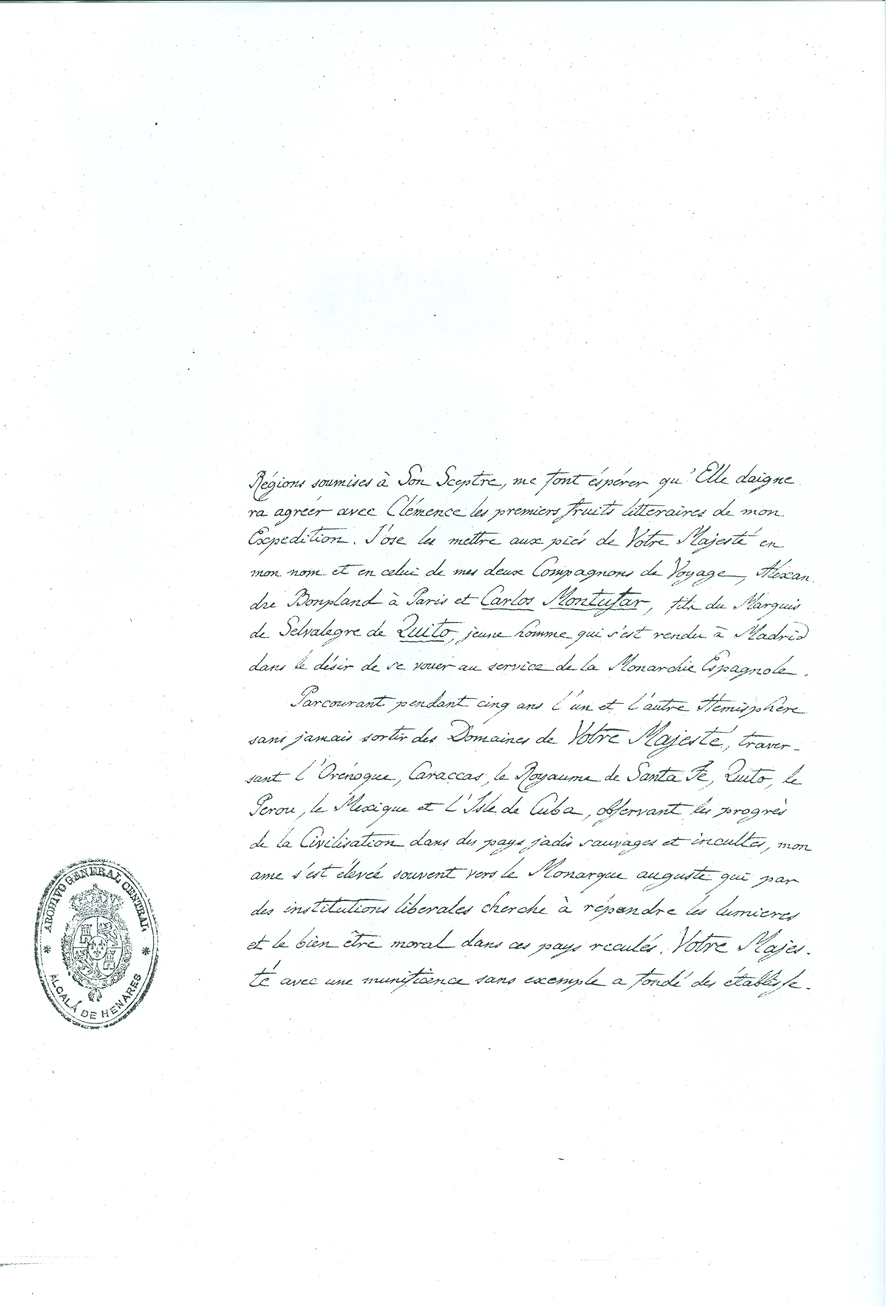 Régions soumises à Son Sceptre, me font éspérer qu'Elle daigne
ra agréer avec Clémence les premiers fruits litteraires de mon
Expedition. J'ose les mettre aux piés de Votre Majesté en
mon nom et en celui de mes deux Compagnons de Voyage, Aléxan
dre Bonpland à Paris et Carlos Montufar, fils du Marquis
de Selvalegre de Quito, jeune homme qui s'est rendu à Madrid
dans le désir de se vouer au service de la Monarchie Espagnole.
Parcourant pendant cinq ans l'un et l'autre Hémisphère
sans jamais sortir des Domaines de Votre Majesté, traver-
sant l'Orénoque, Caraccas, le Royaume de Santa Fe, Quito, le
Perou, le Mexique et l'Isle de Cuba, observant les progrès
de la Civilisation dans des pays jadis sauvages et incultes, mon
ame s'est élevéé souvent vers le Monarque auguste qui par
des institutions liberales cherche à répandre les lumieres
et le bien être moral dans ces pays reculés. Votre Majes-
té avec une munificence sans exemple a fondé des établisse-
ARCHIVO GENERAL CENTRAL
ALCALÁ DE HENARES